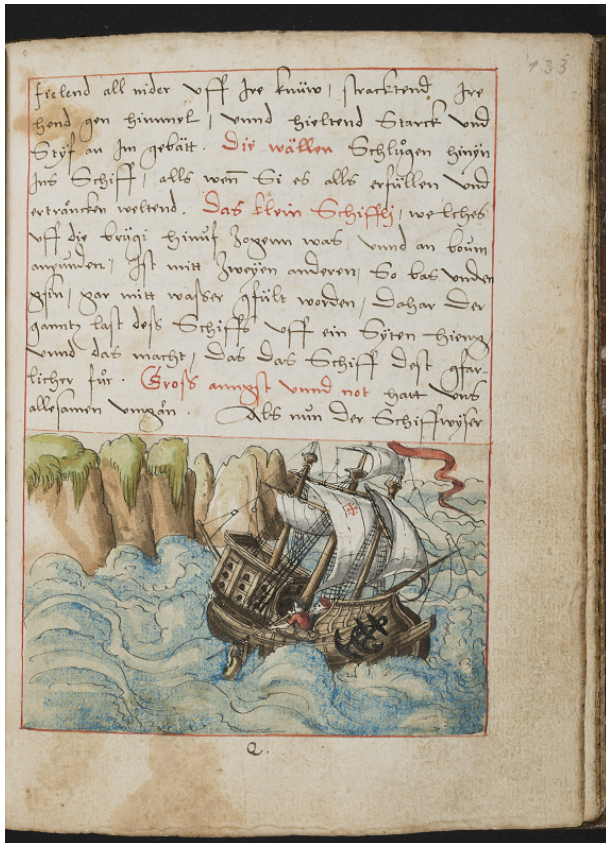 133
fielend all nider vff Jre knüw, stracktend Jre
hend gen himmel, vnnd hieltend Starck vnd
Styf an Jm gebätt. Die wällen Schlůgen hinÿn
Jns Schiff, alls wen̄ Si es alls erfüllen vnd
ertråncken weltend. Das klein Schifflj, welches
vff die brügi hinuf Zogenn was, vnnd an boum
anpunden, Jst mitt Zweÿen anderen, So bas vnden
gsin, gar mitt wasser gfült worden, Dahar Der
ganntz last dess Schiffs vff ein Sÿten hieng,
vnnd das macht, das das Schiff dest gfar-
licher fůr. Gross anngst vnnd not hatt vns
allesamen vmgån. Als nůn Der Schiffwÿser
Q.